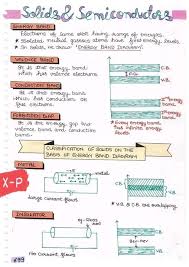 Solids & Semiconductors
ENERGY BAND
Electrons of same orbit having range of energies.
Isolated medical gaseous atoms have fixed energy levels
In solids, we draw "ENERGY BAND DIAGRAM"
VALENCE BAND
It is the energy band
which has valence electrons
CONDUCTION BAND
It is that energy band
which has conduction or
free electrons
FORBIDDEN GAP
It is the energy gap b/w
valence band and conduction
band.
Every energy band
has infinite energy
levels
CLASSIFICATION OF SOLIDS ON THE
BASIS OF ENERGY BAND DIAGRAM
METAL
X-P
C.B.
V.B.
Large current flows
V.B. & C.B. are overlapped
INSULATOR
eg- Glass
rod
C.B.
V.B.
No current flows